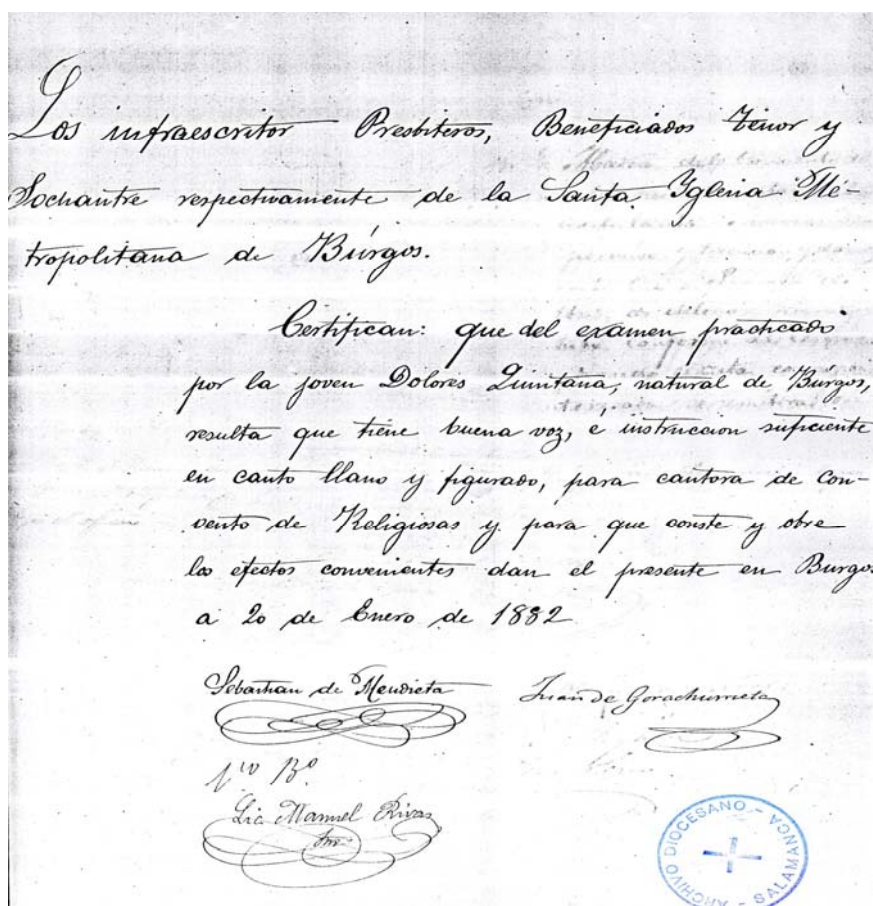 Los infraescritos Presbiteros, Beneficiados Tenor y
Sochantre respectivamente de la Santa Yglesia Mé-
tropolitana de Búrgos.
Certifican: que del examen practicado
por la joven Dolores Quintana, natural de Búrgos,
resulta que tiene buena voz, e instruccion suficiente
en canto llano y figurado, para cantora de Con-
vento de Religiosas y para que conste y obre
los efectos convenientes dan el presente en Burgos
a 20 de Enero de 1882
Sebastian de Mendieta Juan de Gorachurrieta
Vto Bo
Lic. Manuel Rivas
ARCHIVO DIOCESANO - SALAMANCA